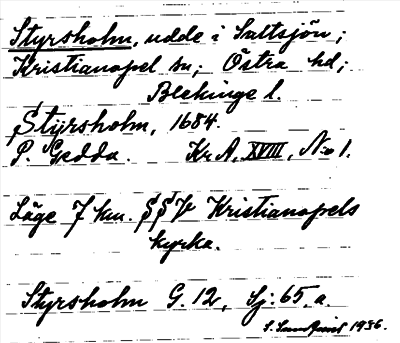 Styrsholm, udde i Saltsjön;
Kristianopel sn; Östra hd;
Blekinge l.
Styrsholm, 1684.
P. Gedda. Kr A, XVIII, N:o 1.
Läge 7 km. SSV Kristianopels
kyrka.
Styrsholm G. 12, Sj: 65. a.
S. Sundquist 1936.